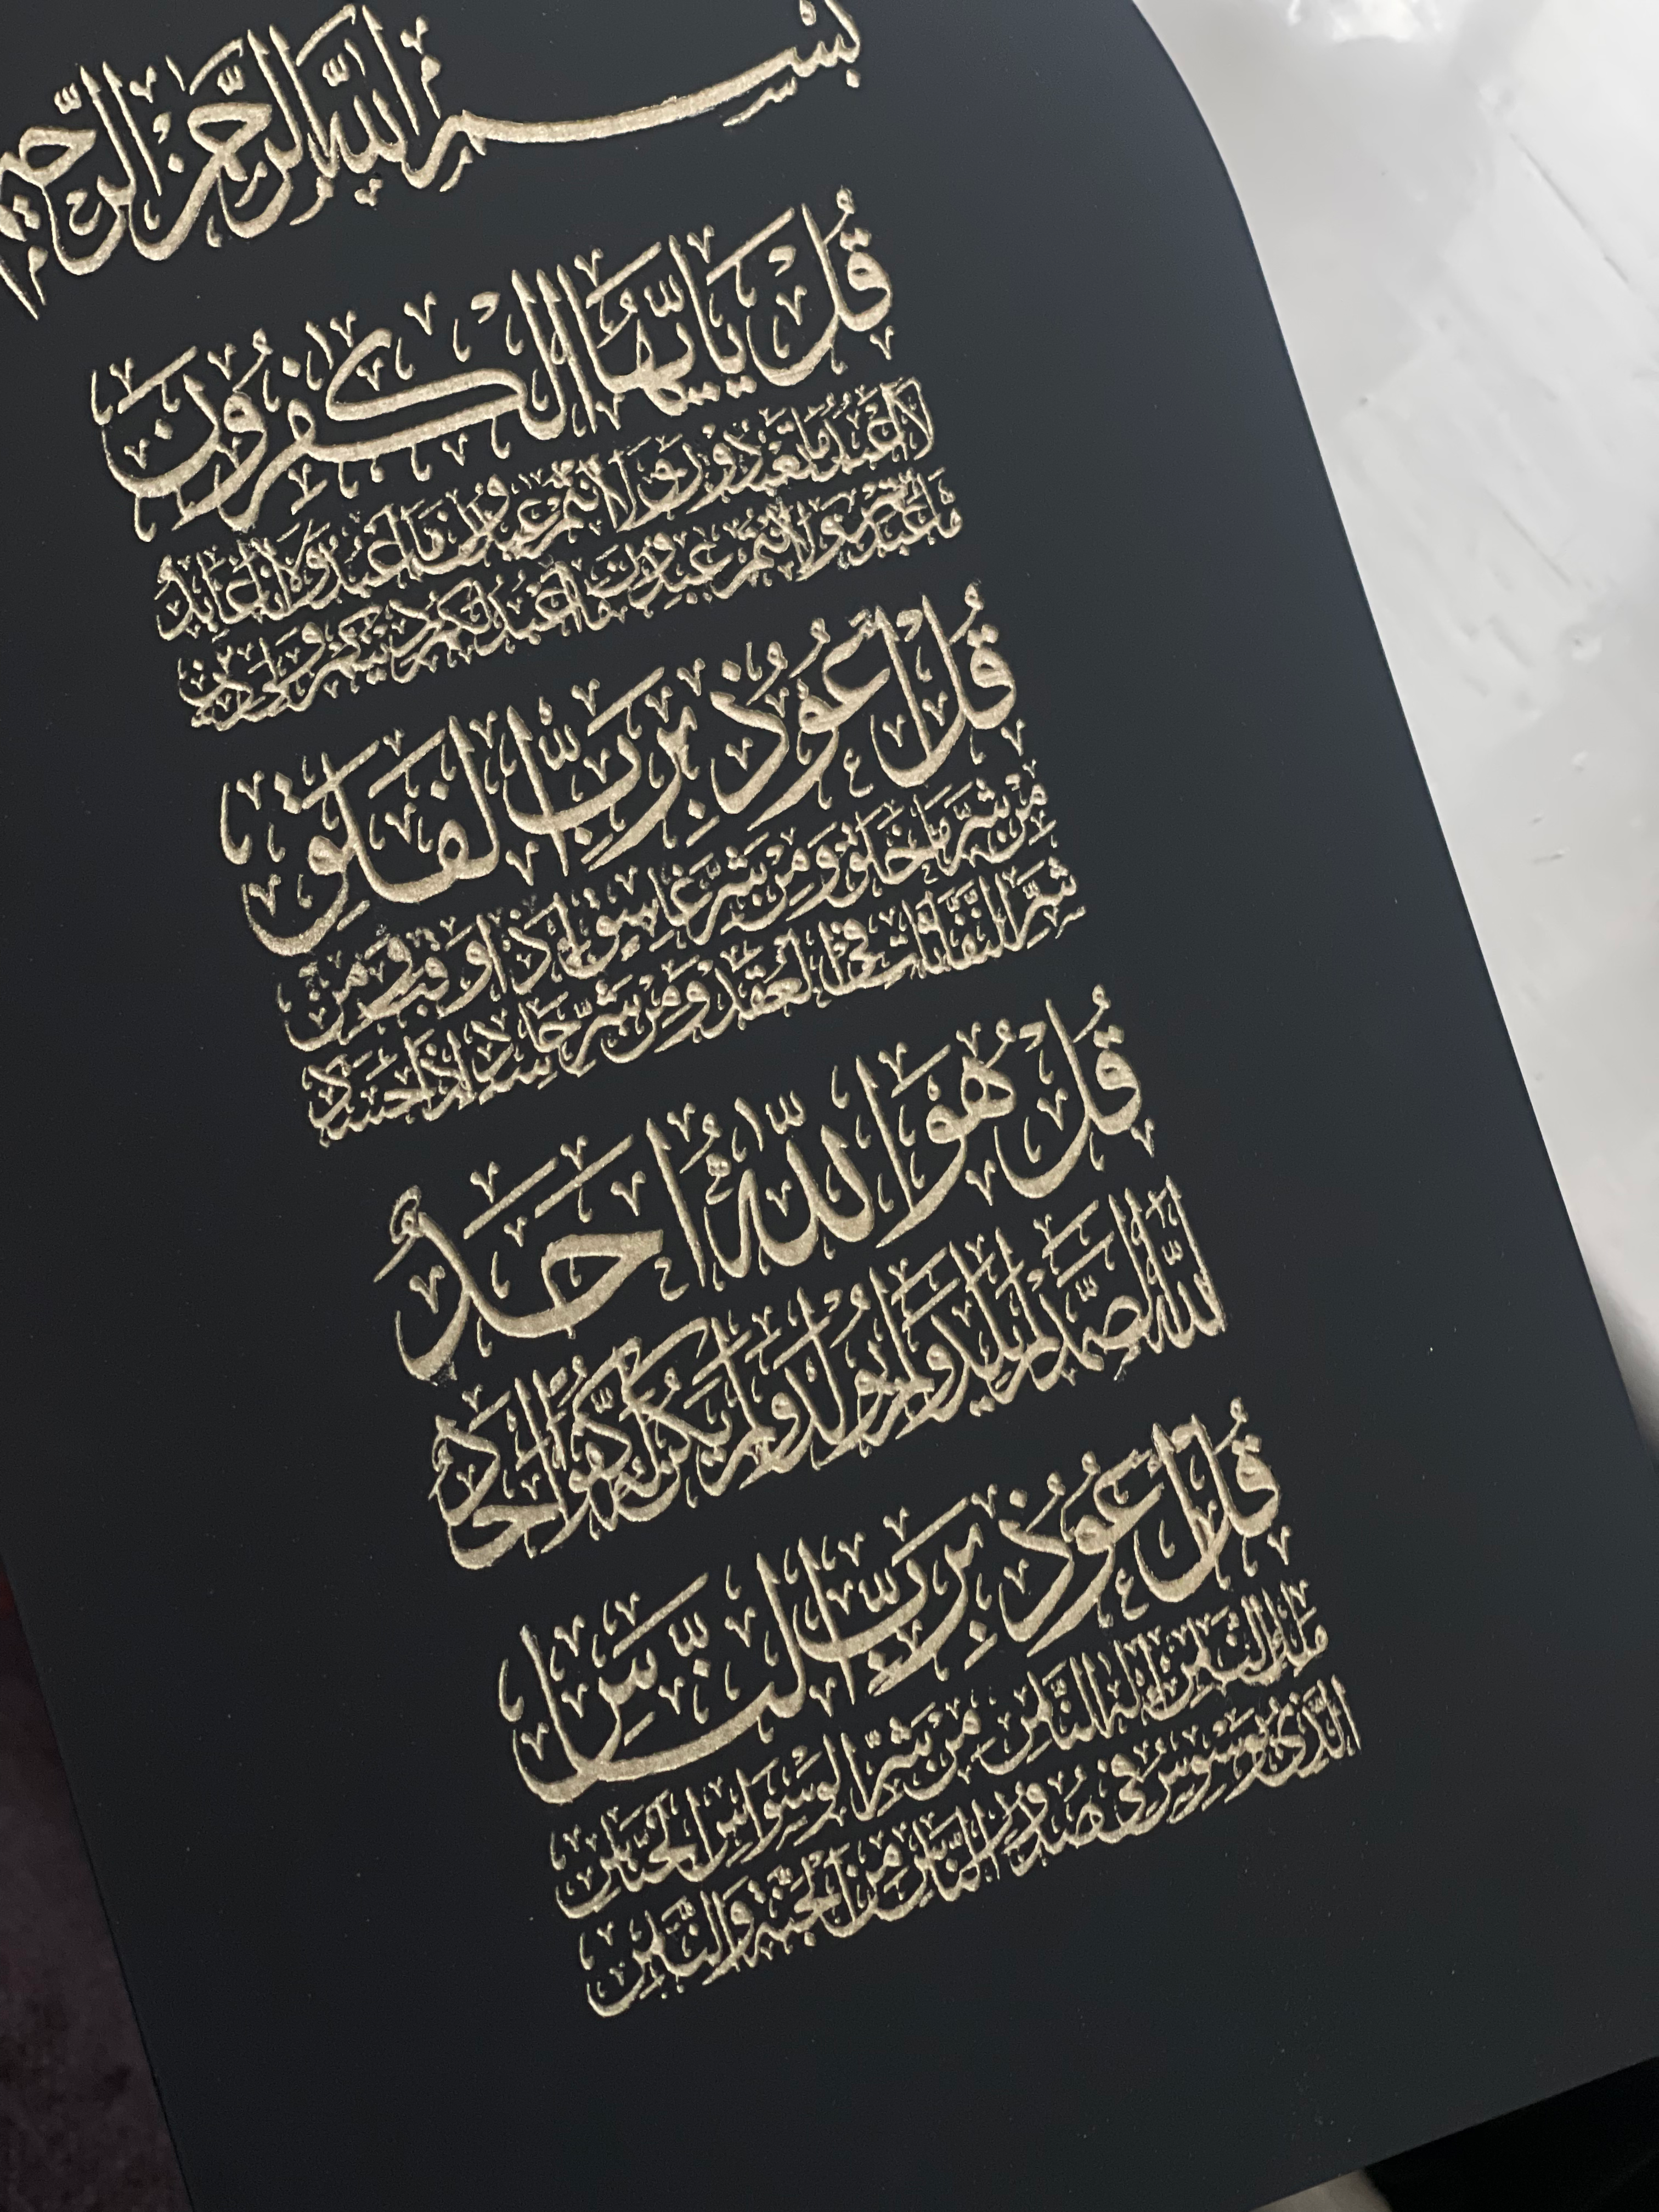 بسم الله الرحمن الرحيم
قُلْ يَا أَيُّهَا الْكٰفِرُونَ
لَا أَعْبُدُ مَا تَعْبُدُونَ وَلَا أَنْتُمْ عٰبِدُونَ مَا أَعْبُدُ وَلَا أَنَا عَابِدٌ
مَا عَبَدْتُمْ وَلَا أَنْتُمْ عٰبِدُونَ مَا أَعْبُدُ لَكُمْ دِينُكُمْ وَلِيَ دِينِ
قُلْ أَعُوذُ بِرَبِّ الْفَلَقِ
مِنْ شَرِّ مَا خَلَقَ وَمِنْ شَرِّ غَاسِقٍ إِذَا وَقَبَ وَمِنْ
شَرِّ النَّفّٰثٰتِ فِي الْعُقَدِ وَمِنْ شَرِّ حَاسِدٍ إِذَا حَسَدَ
قُلْ هُوَ اللّٰهُ أَحَدٌ
اللّٰهُ الصَّمَدُ لَمْ يَلِدْ وَلَمْ يُولَدْ وَلَمْ يَكُنْ لَهُ كُفُوًا أَحَدٌ
قُلْ أَعُوذُ بِرَبِّ النَّاسِ
مَلِكِ النَّاسِ إِلٰهِ النَّاسِ مِنْ شَرِّ الْوَسْوَاسِ الْخَنَّاسِ
الَّذِي يُوَسْوِسُ فِي صُدُورِ النَّاسِ مِنَ الْجِنَّةِ وَالنَّاسِ